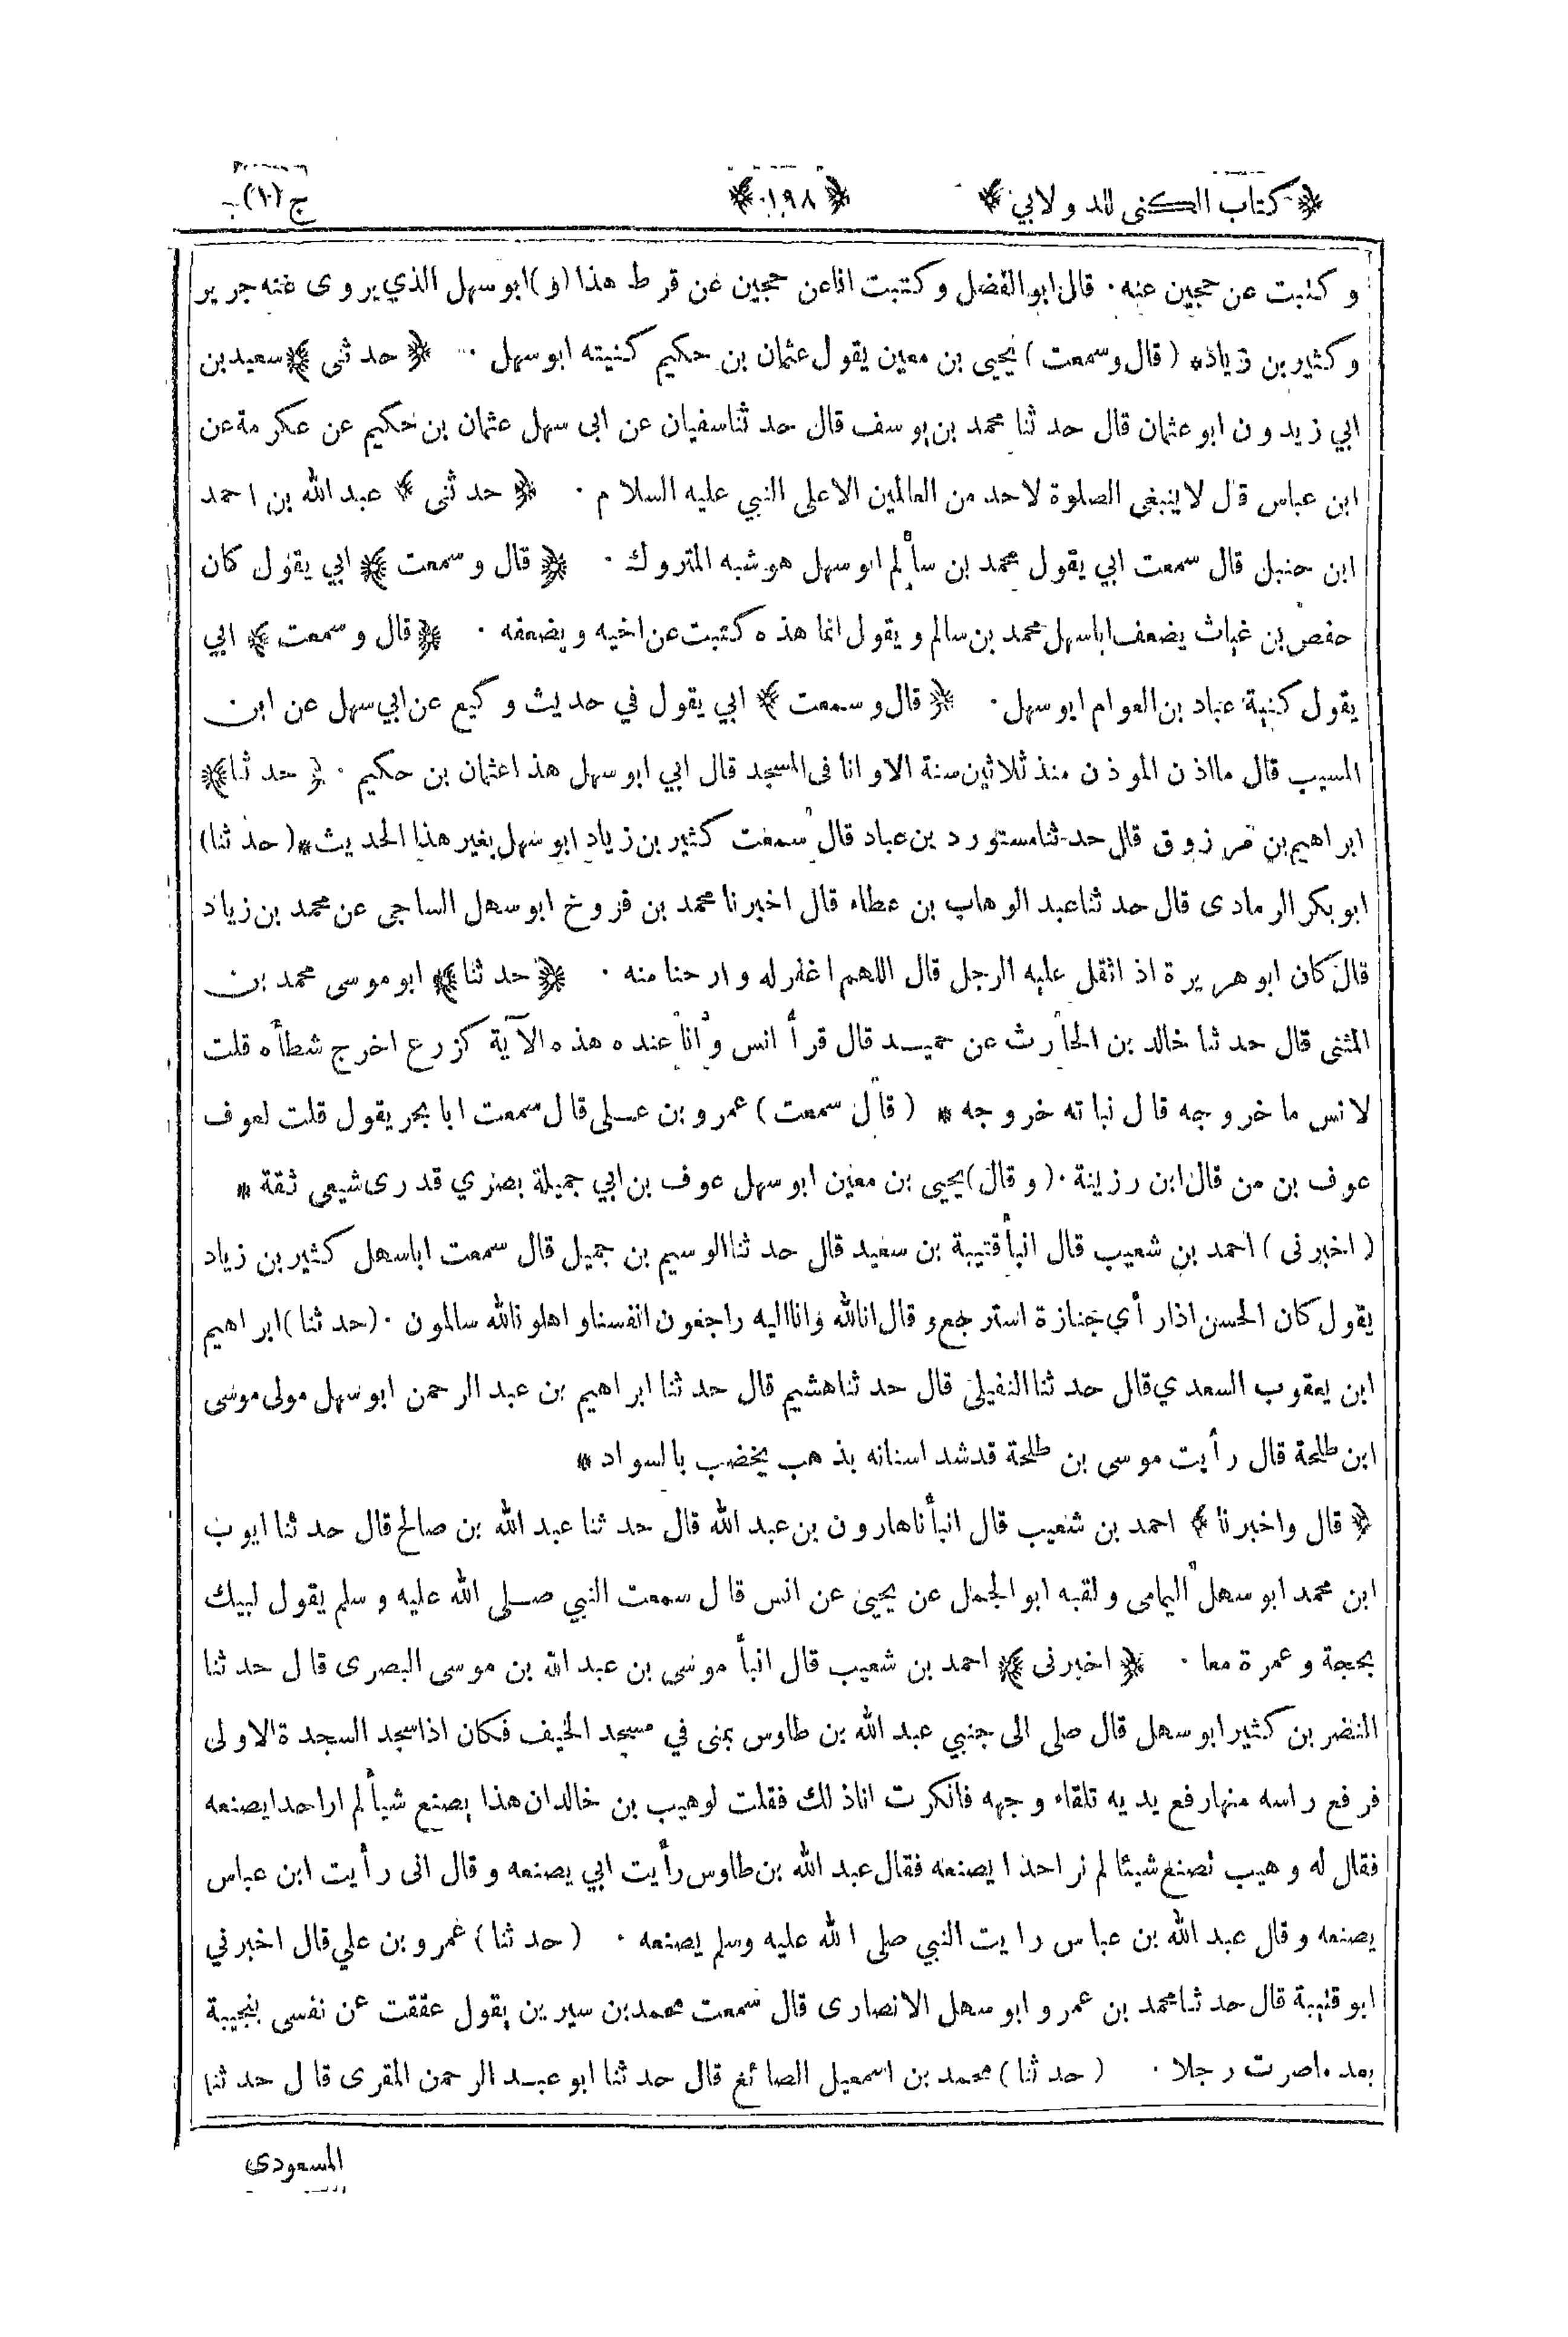 ﴿ كتاب الكنى للدولابي ﴾ ﴿ ١٩٨ ﴾ ج (١)
وكتبت عن حجين عنه ٠ قال ابو الفضل وكتبت انا عن حجين عن قرط هذا (و) ابو سهل الذي يروى عنه جرير
وكثير بن زياد * (قال وسمعت) يحيى بن معين يقول عثمان بن حكيم كنيته ابو سهل ٠ ﴿ حدثنى ﴾ سعيد بن
ابي زيدون ابو عثمان قال حدثنا محمد بن يوسف قال حدثنا سفيان عن ابى سهل عثمان بن حكيم عن عكرمة عن
ابن عباس قال لا ينبغى الصلوة لاحد من العالمين الا على النبي عليه السلام ٠ ﴿ حدثنى ﴾ عبد الله بن احمد
ابن حنبل قال سمعت ابي يقول محمد بن سالم ابو سهل هو شبه المتروك ٠ ﴿ قال وسمعت ﴾ ابي يقول كان
حفص بن غياث يضعف ابا سهل محمد بن سالم ويقول انما هذه كتبت عن اخيه ويضعفه ٠ ﴿ قال وسمعت ﴾ ابي
يقول كنية عباد بن العوام ابو سهل ٠ ﴿ قال وسمعت ﴾ ابي يقول في حديث وكيع عن ابي سهل عن ابن
المسيب قال ما اذن الموذن منذ ثلاثين سنة الا وانا فى المسجد قال ابي ابو سهل هذا عثمان بن حكيم ٠ ﴿ حدثنا ﴾
ابراهيم بن مرزوق قال حدثنا مستورد بن عباد قال سمعت كثير بن زياد ابو سهل بغير هذا الحديث * (حدثنا)
ابو بكر الرمادى قال حدثنا عبد الوهاب بن عطاء قال اخبرنا محمد بن فروخ ابو سهل الساجى عن محمد بن زياد
قال كان ابو هريرة اذ اثقل عليه الرجل قال اللهم اغفر له وارحنا منه ٠ ﴿ حدثنا ﴾ ابو موسى محمد بن
المثنى قال حدثنا خالد بن الحارث عن حميد قال قرأ انس وانا عنده هذه الآية كزرع اخرج شطأه قلت
لانس ما خروجه قال نباته خروجه * (قال سمعت) عمرو بن على قال سمعت ابا بحر يقول قلت لعوف
عوف بن من قال ابن رزينة ٠ (وقال) يحيى بن معين ابو سهل عوف بن ابي جميلة بصري قدرى شيعى ثقة *
(اخبرنى) احمد بن شعيب قال انبأ قتيبة بن سعيد قال حدثنا الوسيم بن جميل قال سمعت ابا سهل كثير بن زياد
يقول كان الحسن اذا رأي جنازة استرجع وقال انا لله وانا اليه راجعون انفسنا و اهلونا لله سالمون ٠ (حدثنا) ابراهيم
ابن يعقوب السعدي قال حدثنا النفيلى قال حدثنا هشيم قال حدثنا ابراهيم بن عبد الرحمن ابو سهل مولى موسى
ابن طلحة قال رأيت موسى بن طلحة قد شد اسنانه بذهب يخضب بالسواد *
﴿ قال واخبرنا ﴾ احمد بن شعيب قال انبأنا هارون بن عبد الله قال حدثنا عبد الله بن صالح قال حدثنا ايوب
ابن محمد ابو سهل اليمامى ولقبه ابو الجمل عن يحيى عن انس قال سمعت النبي صلى الله عليه وسلم يقول لبيك
بحجة وعمرة معا ٠ ﴿ اخبرنى ﴾ احمد بن شعيب قال انبأ موسى بن عبد الله بن موسى البصرى قال حدثنا
النضر بن كثير ابو سهل قال صلى الى جنبي عبد الله بن طاوس بمنى في مسجد الخيف فكان اذا سجد السجدة الاولى
فرفع راسه منها رفع يديه تلقاء وجهه فانكرت انا ذلك فقلت لوهيب بن خالد ان هذا يصنع شيأ لم ار احدا يصنعه
فقال له وهيب تصنع شيئا لم نر احدا يصنعه فقال عبد الله بن طاوس رأيت ابي يصنعه وقال انى رأيت ابن عباس
يصنعه وقال عبد الله بن عباس رايت النبي صلى الله عليه وسلم يصنعه ٠ (حدثنا) عمرو بن علي قال اخبرني
ابو قتيبة قال حدثنا محمد بن عمرو ابو سهل الانصارى قال سمعت محمد بن سيرين يقول عققت عن نفسى بنجيبة
بعد ما صرت رجلا ٠ (حدثنا) محمد بن اسمعيل الصائغ قال حدثنا ابو عبد الرحمن المقرى قال حدثنا
المسعودى